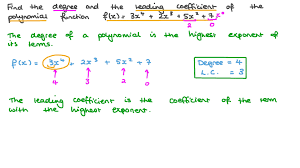 Find the degree and the leading coefficient of the
polynomial function f(x) = 3x⁴ + 2x³ + 5x² + 7
2 0
The degree of a polynomial is the highest exponent of
its terms.
f(x) = 3x⁴ + 2x³ + 5x² + 7
4 3 2 0
Degree = 4
L.C. = 3
The leading coefficient is the coefficient of the term
with the highest exponent.